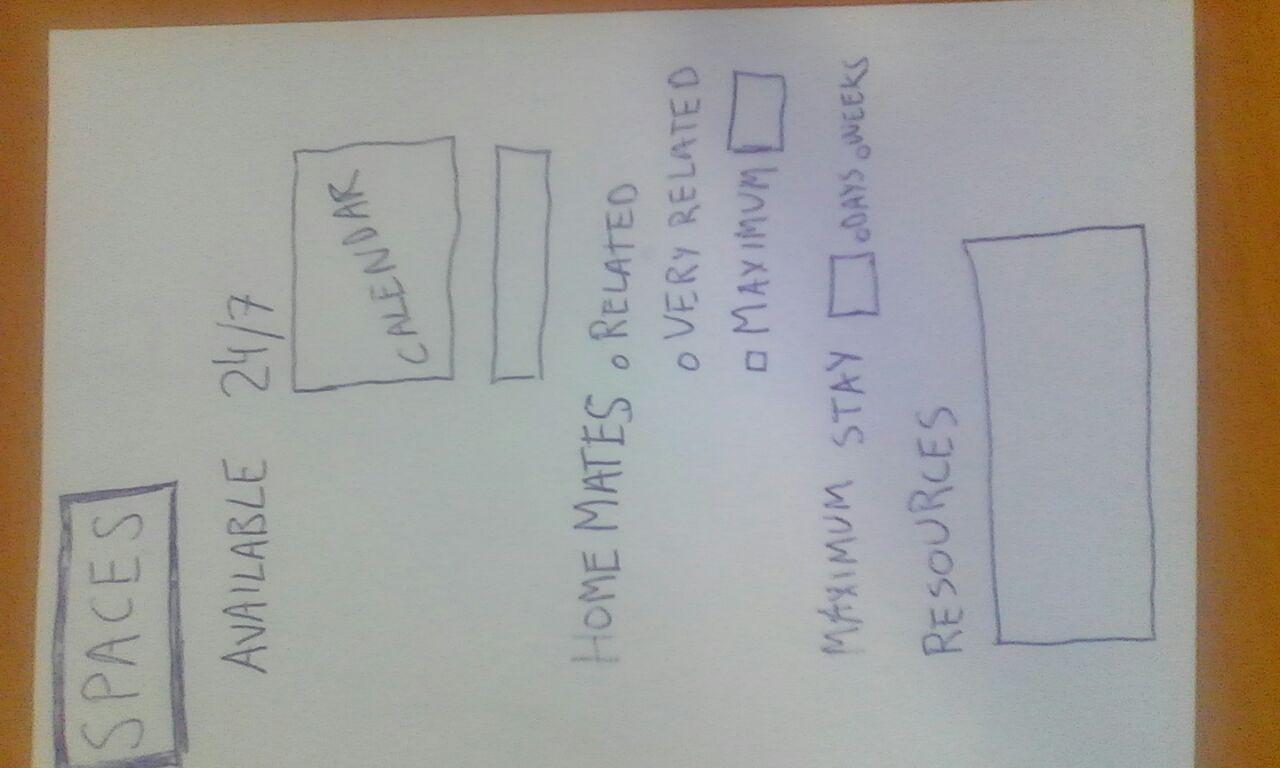 SPACES
AVAILABLE 24/7
CALENDAR
HOME MATES RELATED
VERY RELATED
MAXIMUM
MAXIMUM STAY DAYS WEEKS
RESOURCES